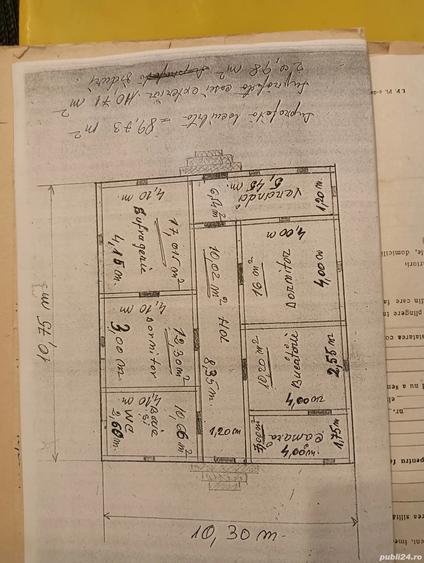 Suprafata locuibila = 89,73 m²
Suprafata casei exterior 110,71 m²
2 co,98 m²
Veranda
5,45 m.
1,20 m
6,54 m²
Sufragerie
4,10 m
17,015 m²
4,15 m.
Dormitor
4,10 m
12,30 m²
3,00 m
Baie si WC
4,10 m
10,66 m²
2,60 m.
Hol
10,02 m²
8,35 m.
1,20 m
Dormitor
4,00 m
16 m²
4,00 m.
Bucătărie
10,20 m²
4,00 m
2,55 m
Camara
4,00 m.
1,75 m
10,75 m
10,30 m
publi24.ro